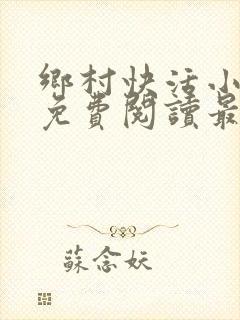 鄉村快活小
免費閱讀最
蘇念妖